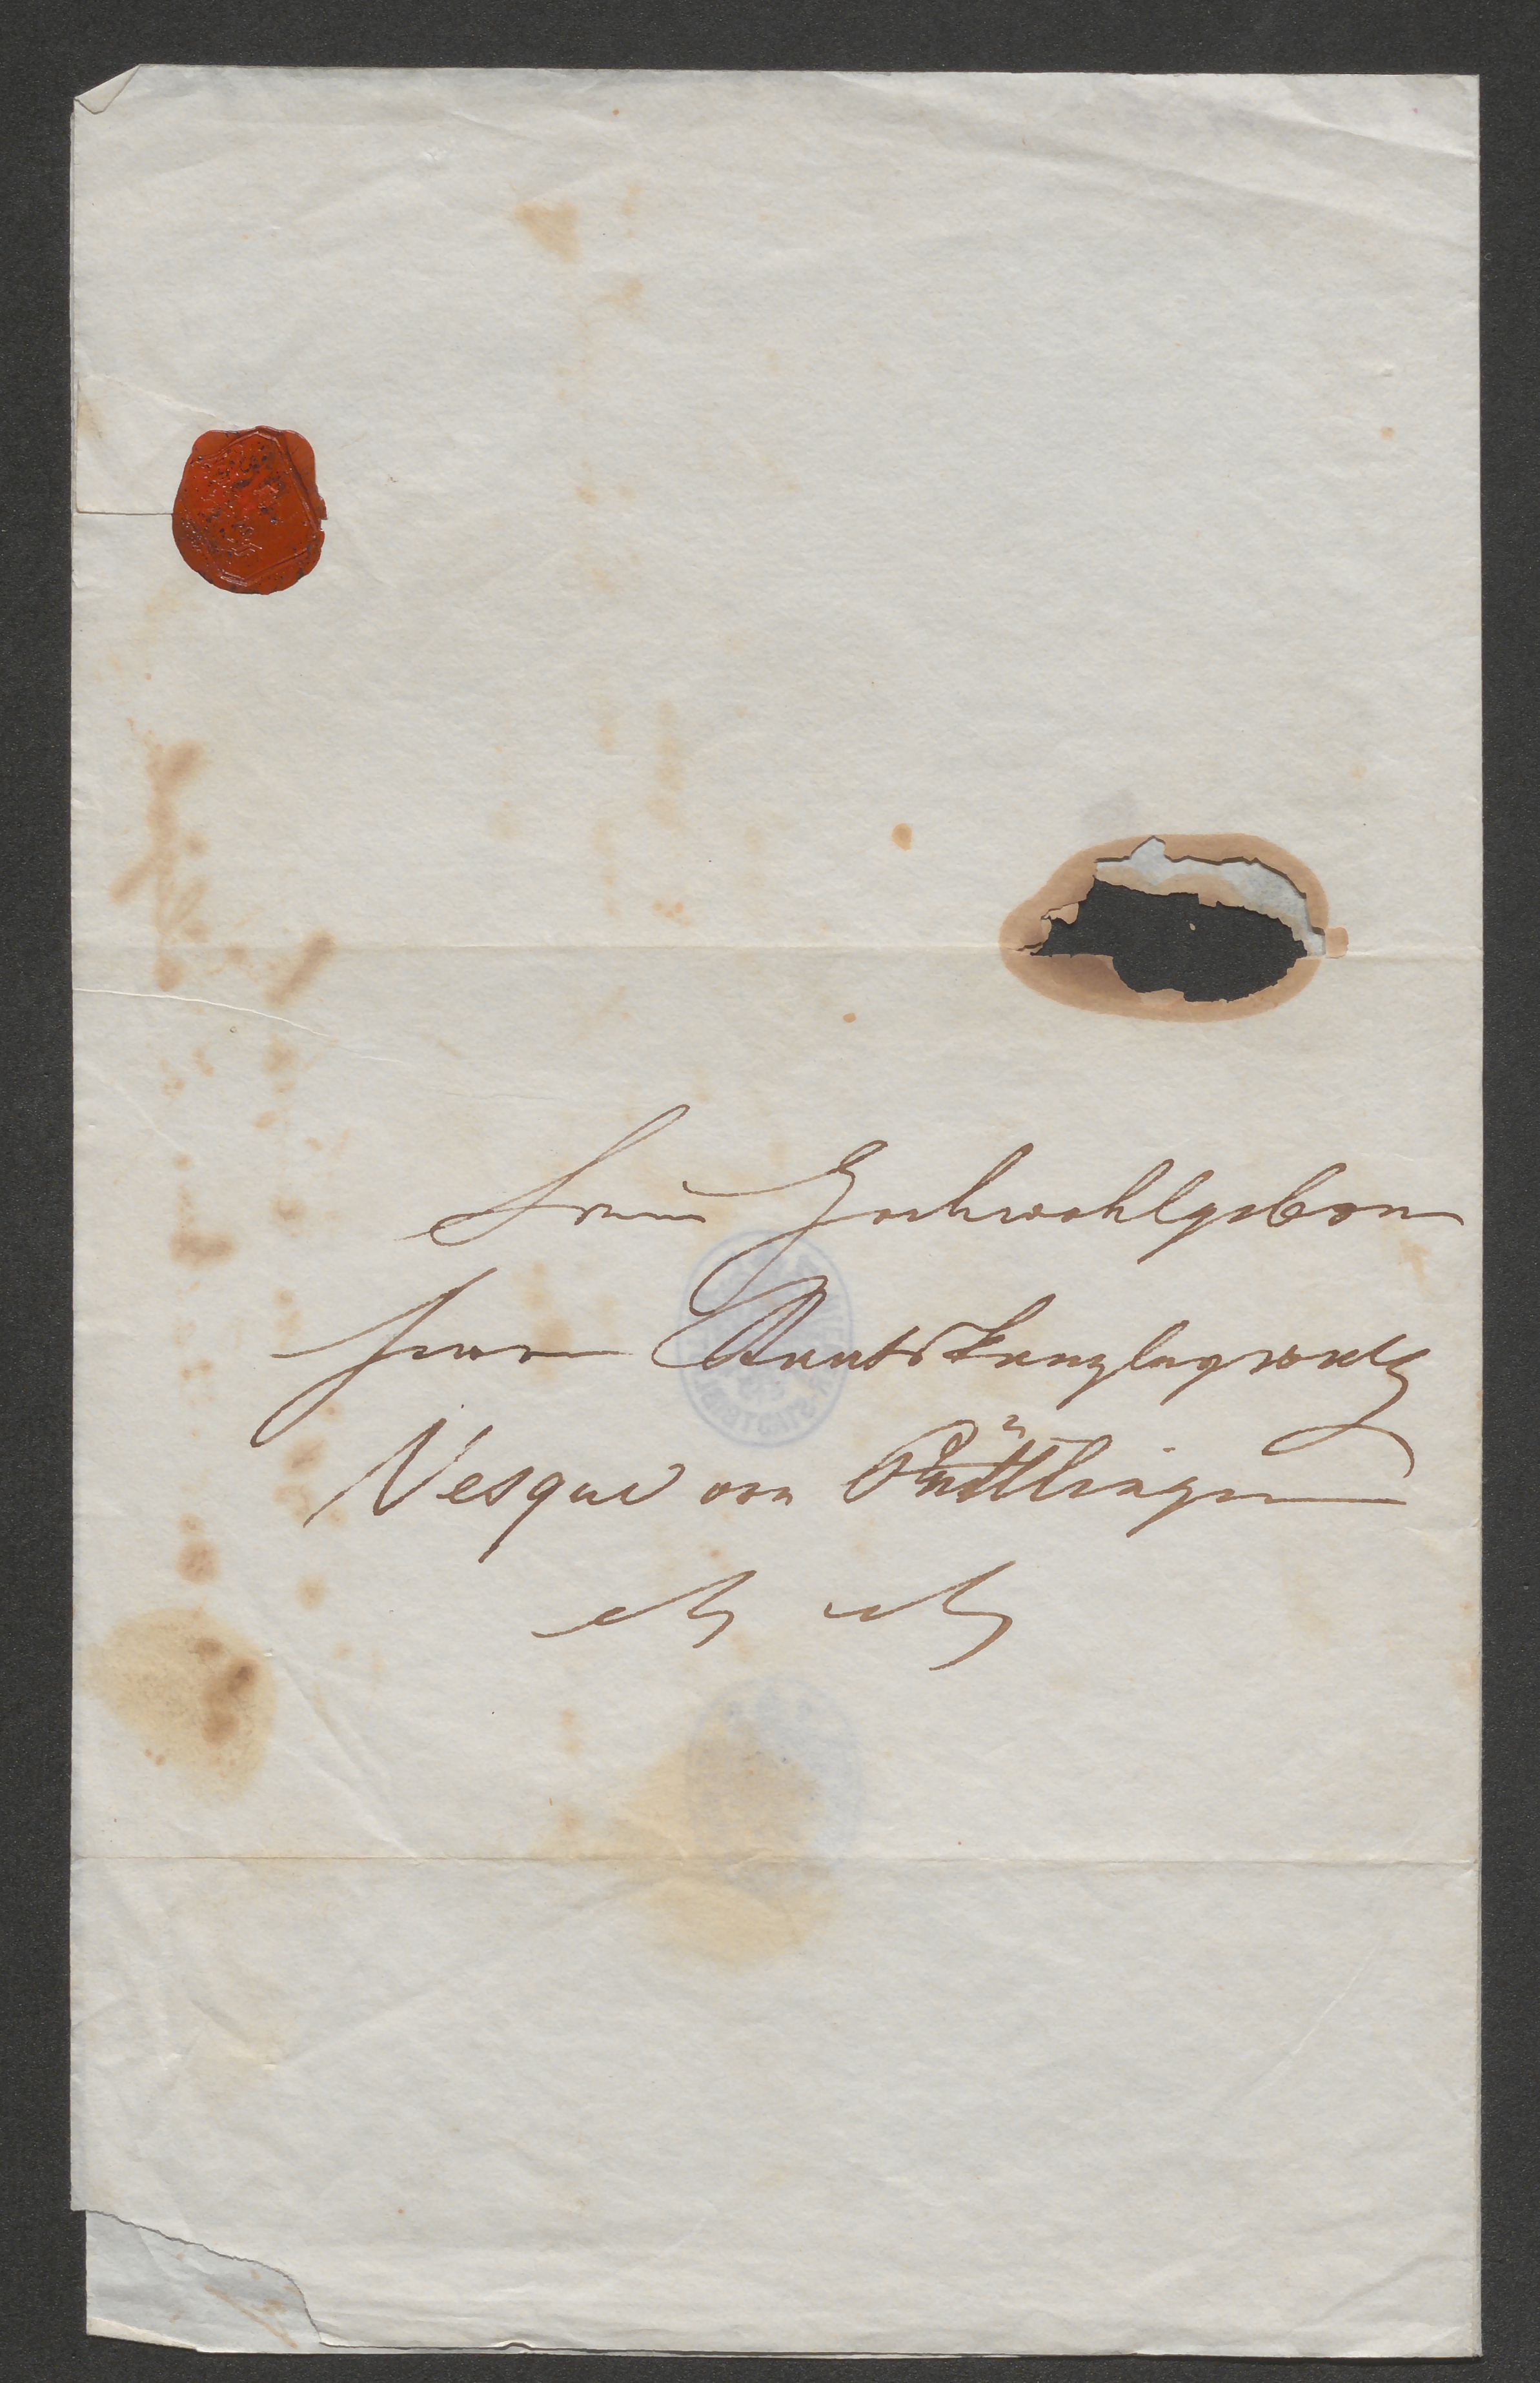 Seiner Hochwohlgeboren
Herrn Staatskanzleyrath
Vesque von Püttlingen
etc etc